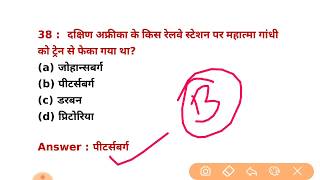 38 : दक्षिण अफ्रीका के किस रेलवे स्टेशन पर महात्मा गांधी
को ट्रेन से फेका गया था?
(a) जोहान्सबर्ग
(b) पीटर्सबर्ग
(c) डरबन
(d) प्रिटोरिया
B
Answer : पीटर्सबर्ग